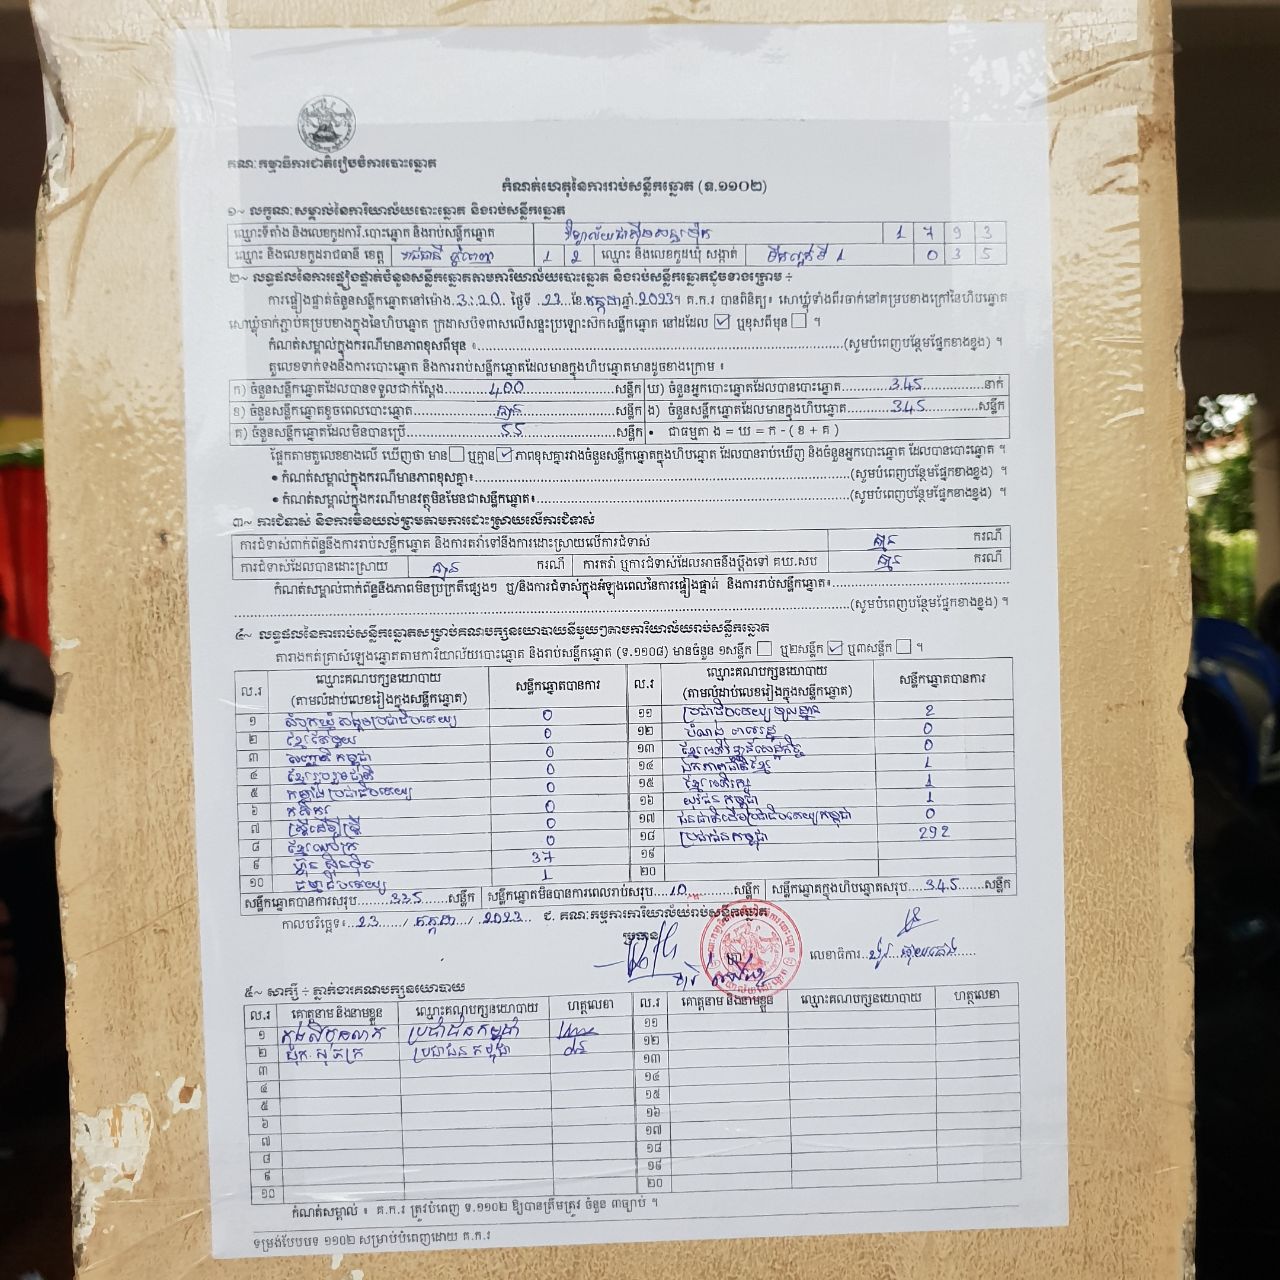 គណៈកម្មាធិការជាតិរៀបចំការបោះឆ្នោត
កំណត់ហេតុនៃការរាប់សន្លឹកឆ្នោត (ទ.១១០២)
១~ លក្ខណៈសម្គាល់នៃការិយាល័យបោះឆ្នោត និងរាប់សន្លឹកឆ្នោត
ឈ្មោះទីតាំង និងលេខកូដការិ.បោះឆ្នោត និងរាប់សន្លឹកឆ្នោត 1 7 9 3
ឈ្មោះ និងលេខកូដរាជធានី ខេត្ត រាជធានី ភ្នំពេញ 1 2 ឈ្មោះ និងលេខកូដឃុំ សង្កាត់ ទឹកល្អក់ទី 1 0 3 5
២~ លទ្ធផលនៃការផ្ទៀងផ្ទាត់ចំនួនសន្លឹកឆ្នោតតាមការិយាល័យបោះឆ្នោត និងរាប់សន្លឹកឆ្នោតដូចខាងក្រោម ÷
ការផ្ទៀងផ្ទាត់ចំនួនសន្លឹកឆ្នោតនៅម៉ោង 3:20 ថ្ងៃទី 23 ខែ កក្កដា ឆ្នាំ 2023។ គ.ក.រ បានពិនិត្យ៖ សោឃ្លុំទាំងពីរចាក់នៅគម្របខាងក្រៅនៃហិបឆ្នោត
សោឃ្លុំចាក់ភ្ជាប់គម្របខាងក្នុងនៃហិបឆ្នោត ក្រដាសបិទពាសលើសន្ទះប្រឡោះស៊កសន្លឹកឆ្នោត នៅដដែល ☑ ឬខុសពីមុន ☐ ។
កំណត់សម្គាល់ក្នុងករណីមានភាពខុសពីមុន ៖ (សូមបំពេញបន្ថែមផ្នែកខាងខ្នង) ។
តួលេខទាក់ទងនឹងការបោះឆ្នោត និងការរាប់សន្លឹកឆ្នោតដែលមានក្នុងហិបឆ្នោតមានដូចខាងក្រោម ៖
ក) ចំនួនសន្លឹកឆ្នោតដែលបានទទួលជាក់ស្តែង 400 សន្លឹក ឃ) ចំនួនអ្នកបោះឆ្នោតដែលបានបោះឆ្នោត 345 នាក់
ខ) ចំនួនសន្លឹកឆ្នោតខូចពេលបោះឆ្នោត គ្មាន សន្លឹក ង) ចំនួនសន្លឹកឆ្នោតដែលមានក្នុងហិបឆ្នោត 345 សន្លឹក
គ) ចំនួនសន្លឹកឆ្នោតដែលមិនបានប្រើ 55 សន្លឹក • ជាធម្មតា ង = ឃ = ក - ( ខ + គ )
ផ្អែកតាមតួលេខខាងលើ ឃើញថា មាន ☐ ឬគ្មាន ☑ ភាពខុសគ្នារវាងចំនួនសន្លឹកឆ្នោតក្នុងហិបឆ្នោត ដែលបានរាប់ឃើញ និងចំនួនអ្នកបោះឆ្នោត ដែលបានបោះឆ្នោត ។
• កំណត់សម្គាល់ក្នុងករណីមានភាពខុសគ្នា៖ (សូមបំពេញបន្ថែមផ្នែកខាងខ្នង) ។
• កំណត់សម្គាល់ក្នុងករណីមានវត្ថុមិនមែនជាសន្លឹកឆ្នោត៖ (សូមបំពេញបន្ថែមផ្នែកខាងខ្នង) ។
៣~ ការជំទាស់ និងការមិនយល់ព្រមតាមការដោះស្រាយលើការជំទាស់
ការជំទាស់ពាក់ព័ន្ធនឹងការរាប់សន្លឹកឆ្នោត និងការតវ៉ាទៅនឹងការដោះស្រាយលើការជំទាស់ គ្មាន ករណី
ការជំទាស់ដែលបានដោះស្រាយ គ្មាន ករណី ការតវ៉ា ឬការជំទាស់ដែលអាចនឹងប្តឹងទៅ គឃ.សប គ្មាន ករណី
កំណត់សម្គាល់ពាក់ព័ន្ធនឹងភាពមិនប្រក្រតីផ្សេងៗ ឬ/និងការជំទាស់ក្នុងអំឡុងពេលនៃការផ្ទៀងផ្ទាត់ និងការរាប់សន្លឹកឆ្នោត៖
(សូមបំពេញបន្ថែមផ្នែកខាងខ្នង) ។
៤~ លទ្ធផលនៃការរាប់សន្លឹកឆ្នោតសម្រាប់គណបក្សនយោបាយនីមួយៗតាមការិយាល័យរាប់សន្លឹកឆ្នោត
តារាងកត់ត្រាសំឡេងឆ្នោតតាមការិយាល័យបោះឆ្នោត និងរាប់សន្លឹកឆ្នោត (ទ.១១០៨) មានចំនួន ១សន្លឹក ☐ ឬ២សន្លឹក ☑ ឬ៣សន្លឹក ☐ ។
ល.រ ឈ្មោះគណបក្សនយោបាយ (តាមលំដាប់លេខរៀងក្នុងសន្លឹកឆ្នោត) សន្លឹកឆ្នោតបានការ ល.រ ឈ្មោះគណបក្សនយោបាយ (តាមលំដាប់លេខរៀងក្នុងសន្លឹកឆ្នោត) សន្លឹកឆ្នោតបានការ
១ សំបុកឃ្មុំ សង្គមប្រជាធិបតេយ្យ 0 ១១ ប្រជាធិបតេយ្យមូលដ្ឋាន 2
២ ខ្មែរតែមួយ 0 ១២ 0
៣ សញ្ជាតិ កម្ពុជា 0 ១៣ ខ្មែរអភិវឌ្ឍន៍សេដ្ឋកិច្ច 0
៤ ខ្មែររួបរួមជាតិ 0 ១៤ ឯកភាពជាតិខ្មែរ 1
៥ កម្លាំងប្រជាធិបតេយ្យ 0 ១៥ ខ្មែរអភិរក្ស 1
៦ កសិករ 0 ១៦ យុវជន កម្ពុជា 1
៧ ស្ត្រីដើម្បីស្ត្រី 0 ១៧ ជនជាតិដើមប្រជាធិបតេយ្យកម្ពុជា 0
៨ ខ្មែរឈប់ក្រ 0 ១៨ ប្រជាជនកម្ពុជា 292
៩ ហ្វ៊ុនស៊ិនប៉ិច 37 ១៩
១០ ធម្មាធិបតេយ្យ 1 ២០
សន្លឹកឆ្នោតបានការសរុប 335 សន្លឹក សន្លឹកឆ្នោតមិនបានការពេលរាប់សរុប 10 សន្លឹក សន្លឹកឆ្នោតក្នុងហិបឆ្នោតសរុប 345 សន្លឹក
កាលបរិច្ឆេទ៖ 23 / កក្កដា / 2023 ជ. គណៈកម្មការការិយាល័យរាប់សន្លឹកឆ្នោត
ប្រធាន
លេខាធិការ
៥~ សាក្សី ÷ ភ្នាក់ងារគណបក្សនយោបាយ
ល.រ គោត្តនាម និងនាមខ្លួន ឈ្មោះគណបក្សនយោបាយ ហត្ថលេខា ល.រ គោត្តនាម និងនាមខ្លួន ឈ្មោះគណបក្សនយោបាយ ហត្ថលេខា
១ ប្រជាជនកម្ពុជា ១១
២ ប្រជាជនកម្ពុជា ១២
៣ ១៣
៤ ១៤
៥ ១៥
៦ ១៦
៧ ១៧
៨ ១៨
៩ ១៩
១០ ២០
កំណត់សម្គាល់ ៖ គ.ក.រ ត្រូវបំពេញ ទ.១១០២ ឱ្យបានត្រឹមត្រូវ ចំនួន ៣ច្បាប់ ។
ទម្រង់បែបបទ ១១០២ សម្រាប់បំពេញដោយ គ.ក.រ